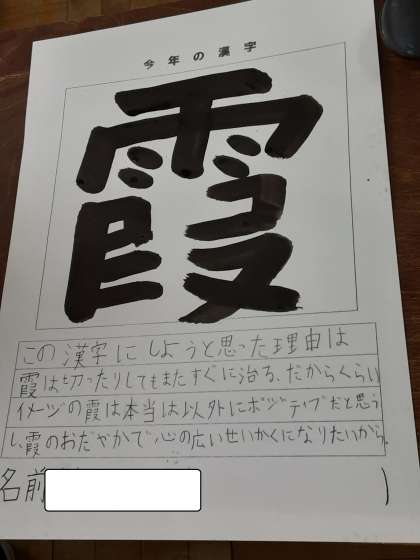 今年の漢字
霞
この漢字にしようと思った理由は
霞は切ったりしてもまたすぐに治る、だからくらい
イメージの霞は本当は以外にポジティブだと思う
し、霞のおだやかで心の広いせいかくになりたいから。
名前
)